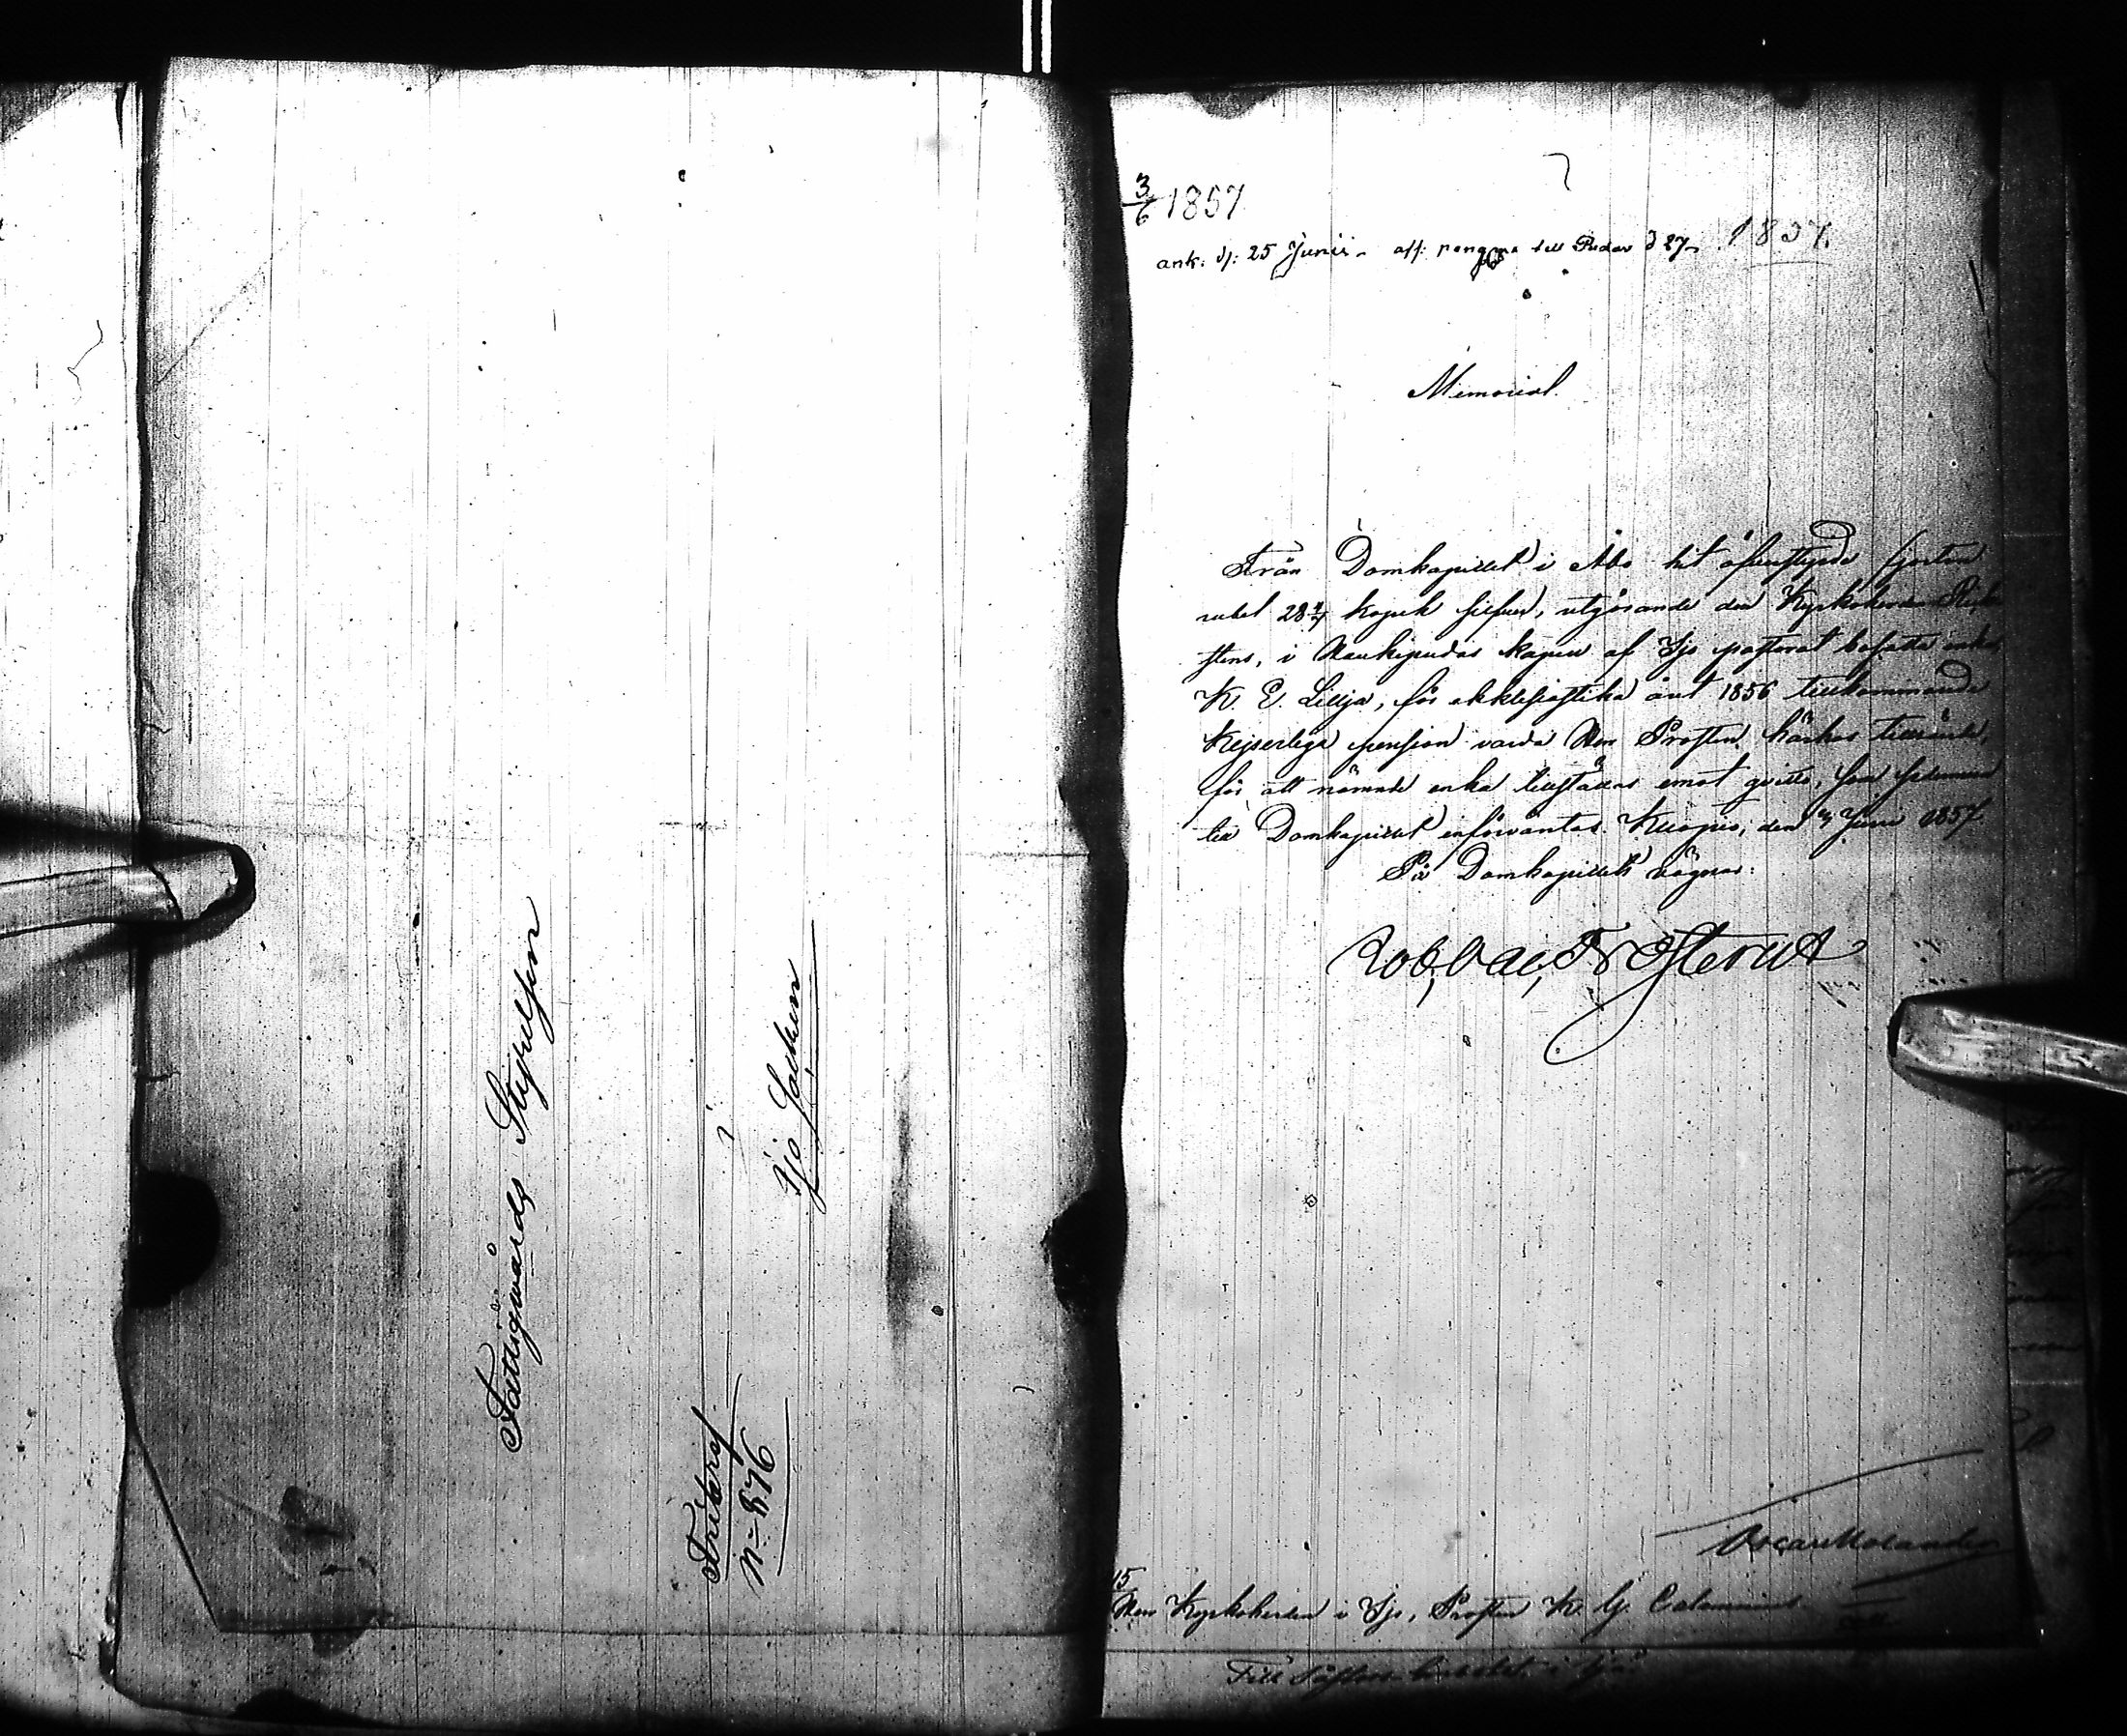 Fattigwårds Styrelsen
i
Ijo Socken
Fribref
No 876
3/6 1857
ank: d: 25 Junii - aff: till Pudas d 27 - 1857.
Memorial.
Från Domkapitlet i Åbo hit öfversända fjorton
rubel 28 4/7 kopek silfver, utgörande den Kyrkoherde
stens, i Haukipudas kapell af Ijo pastorat bosatta enka,
K. E. Lillja, för ekklesiastika året 1856 tillkommande
Kejserliga pension varda Herr Prosten härhos tillsände,
för att nämnde enka tillställas emot qvitto, som sedermera
till Domkapitlet införväntas. Kuopio, den 3 Junii 1857.
På Domkapitlets vägnar:
Rob. Val. Frosterus
Oscar Molander
15
Herr Kyrkoherden i Ijo, Prosten K. G. Calamnius
Till i Ijo